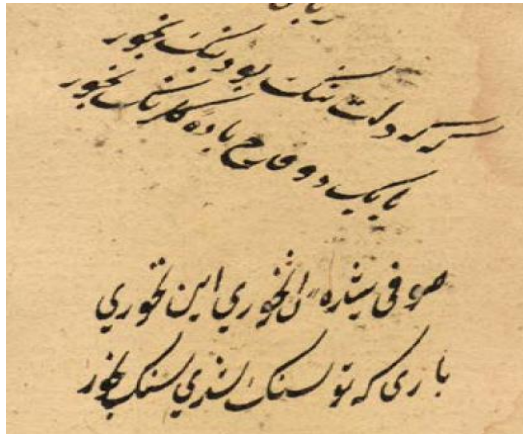 که دلت تنک بود بنک بخور
یا یک دو قدح باده کلرنک بخور
صوفی شده ان نخوري این نخوري
باری که تو سنک شدي سنک بخور